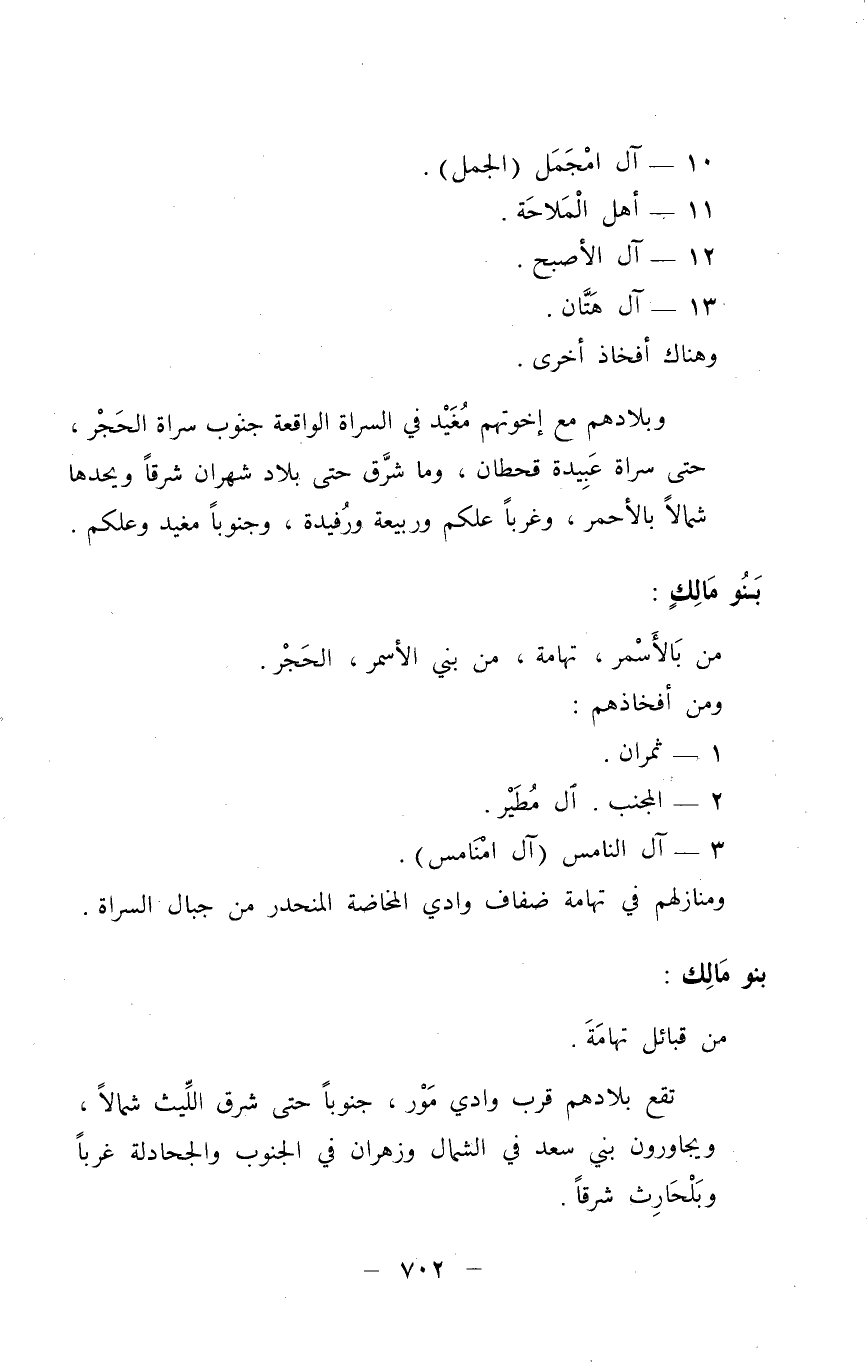 ١٠ — آل امْجَمَل (الجمل) .
١١ — أهل الْمَلاحَة .
١٢ — آل الأصبح .
١٣ — آل هَتَّان .
وهناك أفخاذ أخرى .
وبلادهم مع إخوتهم مُغَيْد في السراة الواقعة جنوب سراة الحَجْر ،
حتى سراة عَبِيدة قحطان ، وما شرَّق حتى بلاد شهران شرقاً ويحدها
شمالاً بالأحمر ، وغرباً علكم وربيعة ورُفيدة ، وجنوباً مغيد وعلكم .
بَنُو مَالِكٍ :
من بَالأَسْمر ، تهامة ، من بني الأسمر ، الحَجْر .
ومن أفخاذهم :
١ — ثمران .
٢ — المجنب . آل مُطَيْر .
٣ — آل النامس (آل امْنَامس) .
ومنازلهم في تهامة ضفاف وادي المخاضة المنحدر من جبال السراة .
بنو مَالِك :
من قبائل تهامَةَ .
تقع بلادهم قرب وادي مَوْر ، جنوباً حتى شرق اللِّيث شمالاً ،
ويجاورون بني سعد في الشمال وزهران في الجنوب والجحادلة غرباً
وبَلْحَارِث شرقاً .
— ٧٠٢ —